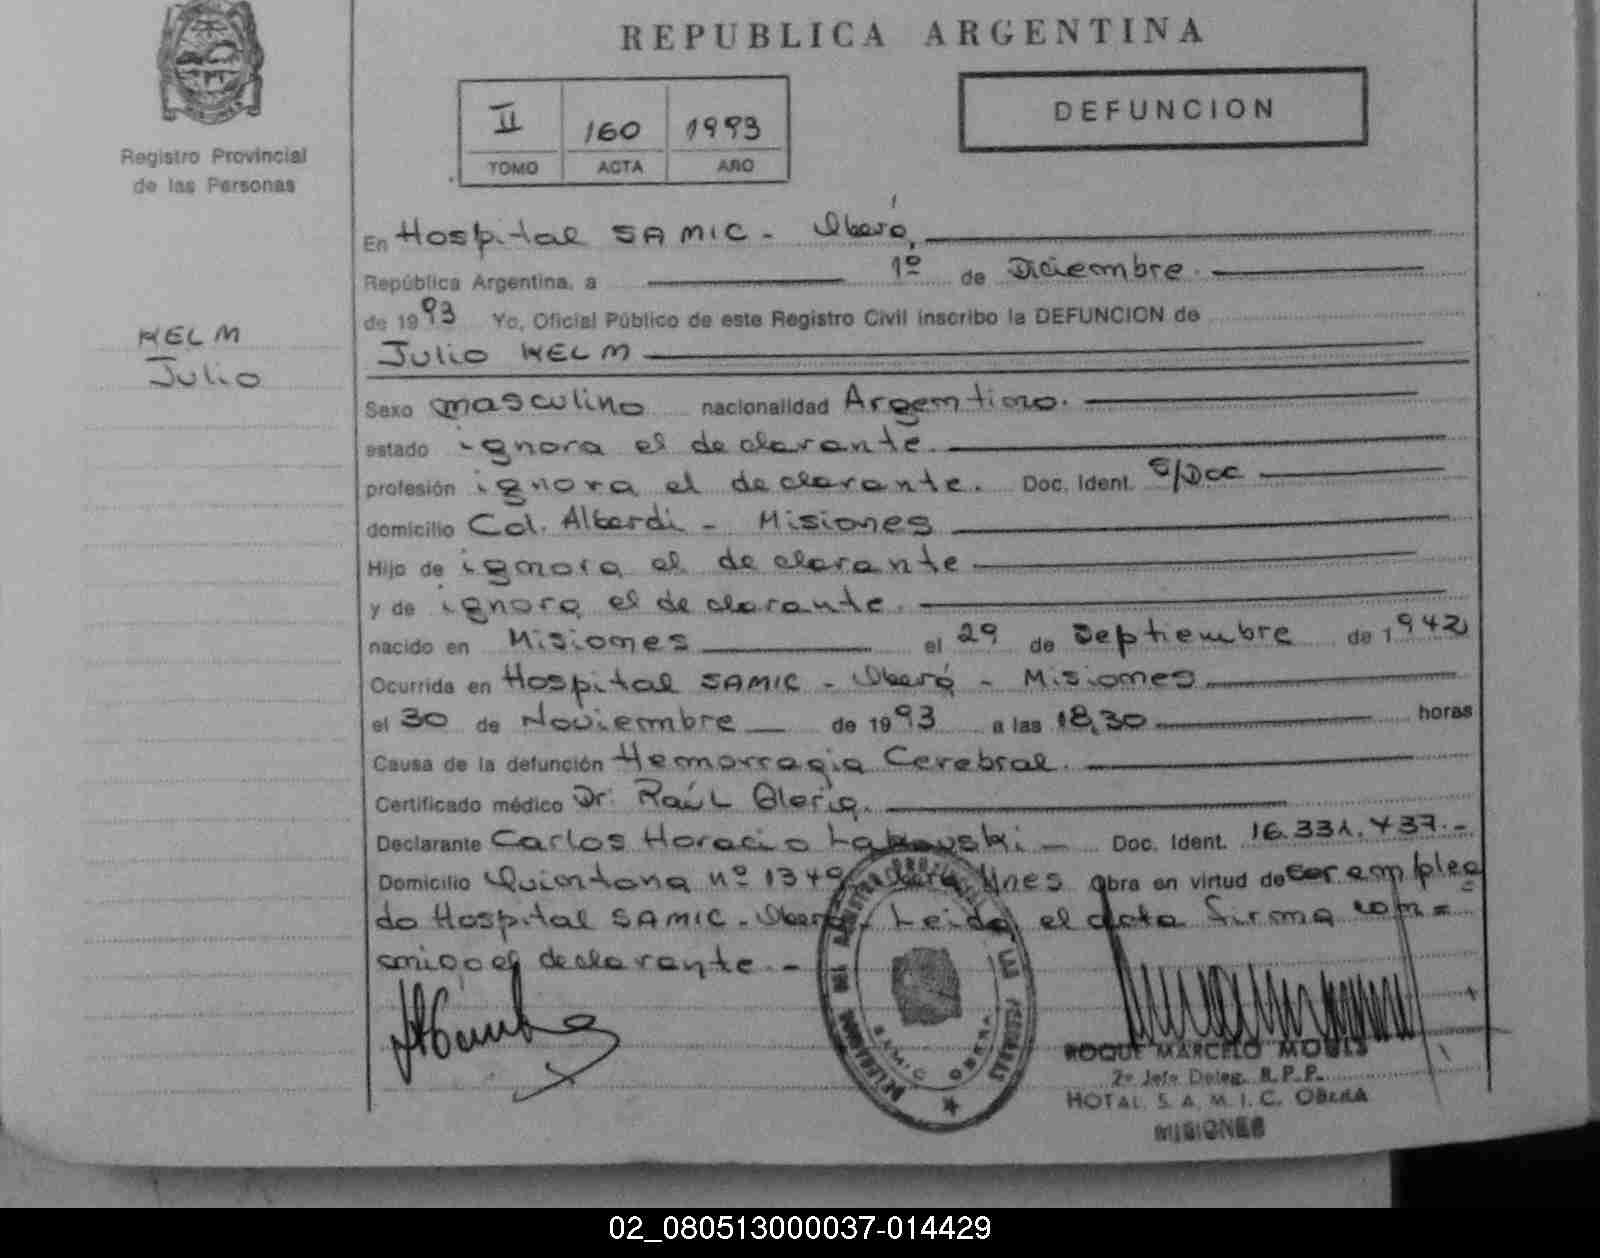 REPUBLICA ARGENTINA
II 160 1993
TOMO ACTA AÑO
DEFUNCION
Registro Provincial
de las Personas
KELM
Julio
En Hospital SAMIC - Oberá,
República Argentina, a 1º de Diciembre.
de 1993 Yo, Oficial Público de este Registro Civil inscribo la DEFUNCION de
Julio KELM
Sexo masculino nacionalidad Argentino.
estado ignora el declarante.
profesión ignora el declarante. Doc. Ident. S/Doc
domicilio Col. Alberdi - Misiones
Hijo de ignora el declarante
y de ignora el declarante.
nacido en Misiones el 29 de Septiembre de 1942
Ocurrida en Hospital SAMIC - Oberá - Misiones
el 30 de Noviembre de 1993 a las 18,30 horas
Causa de la defunción Hemorragia Cerebral.
Certificado médico Dr. Raúl Gloria.
Declarante Carlos Horacio Doc. Ident. 16.331.437.-
Domicilio Quintana nº 1349 Oberá Mnes Obra en virtud de ser emplea
do Hospital SAMIC - Oberá. Leida el acta firma con=
migo el declarante.-
DELEGACION DEL REGISTRO PROVINCIAL DE LAS PERSONAS
OBERA
ROQUE MARCELO
2º Jefe Deleg. R.P.P.
HOTAL. S. A. M. I. C. OBERA
MISIONES
02_080513000037-014429